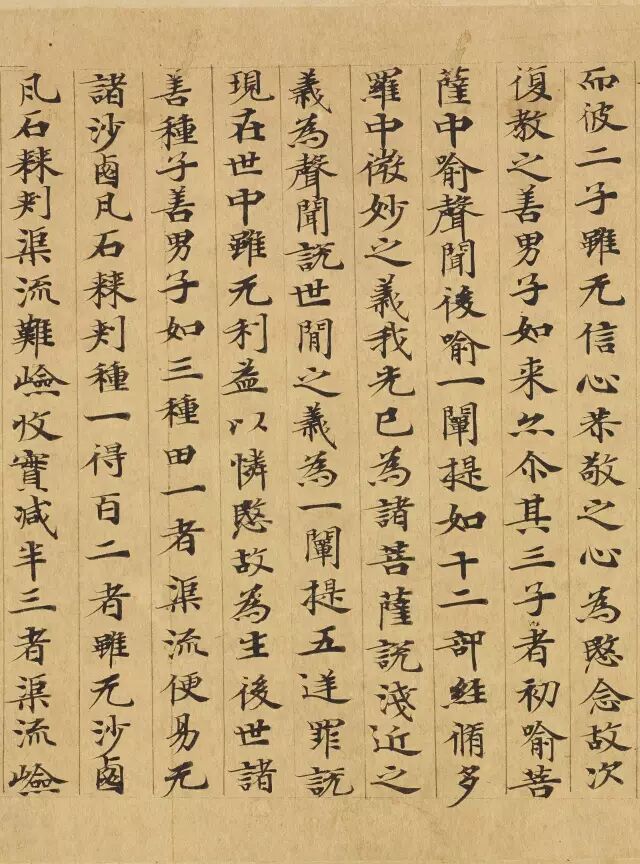 而彼二子雖无信心恭敬之心為愍念故次
復教之善男子如来亦尒其三子者初喻菩
薩中喻聲聞後喻一闡提如十二部經脩多
羅中微妙之義我先已為諸菩薩說淺近之
義為聲聞說世間之義為一闡提五逆罪說
現在世中雖无利益以憐愍故為生後世諸
善種子善男子如三種田一者渠流便易无
諸沙鹵凡石棘刾種一得百二者雖无沙鹵
凡石棘刾渠流難嶮收實減半三者渠流嶮